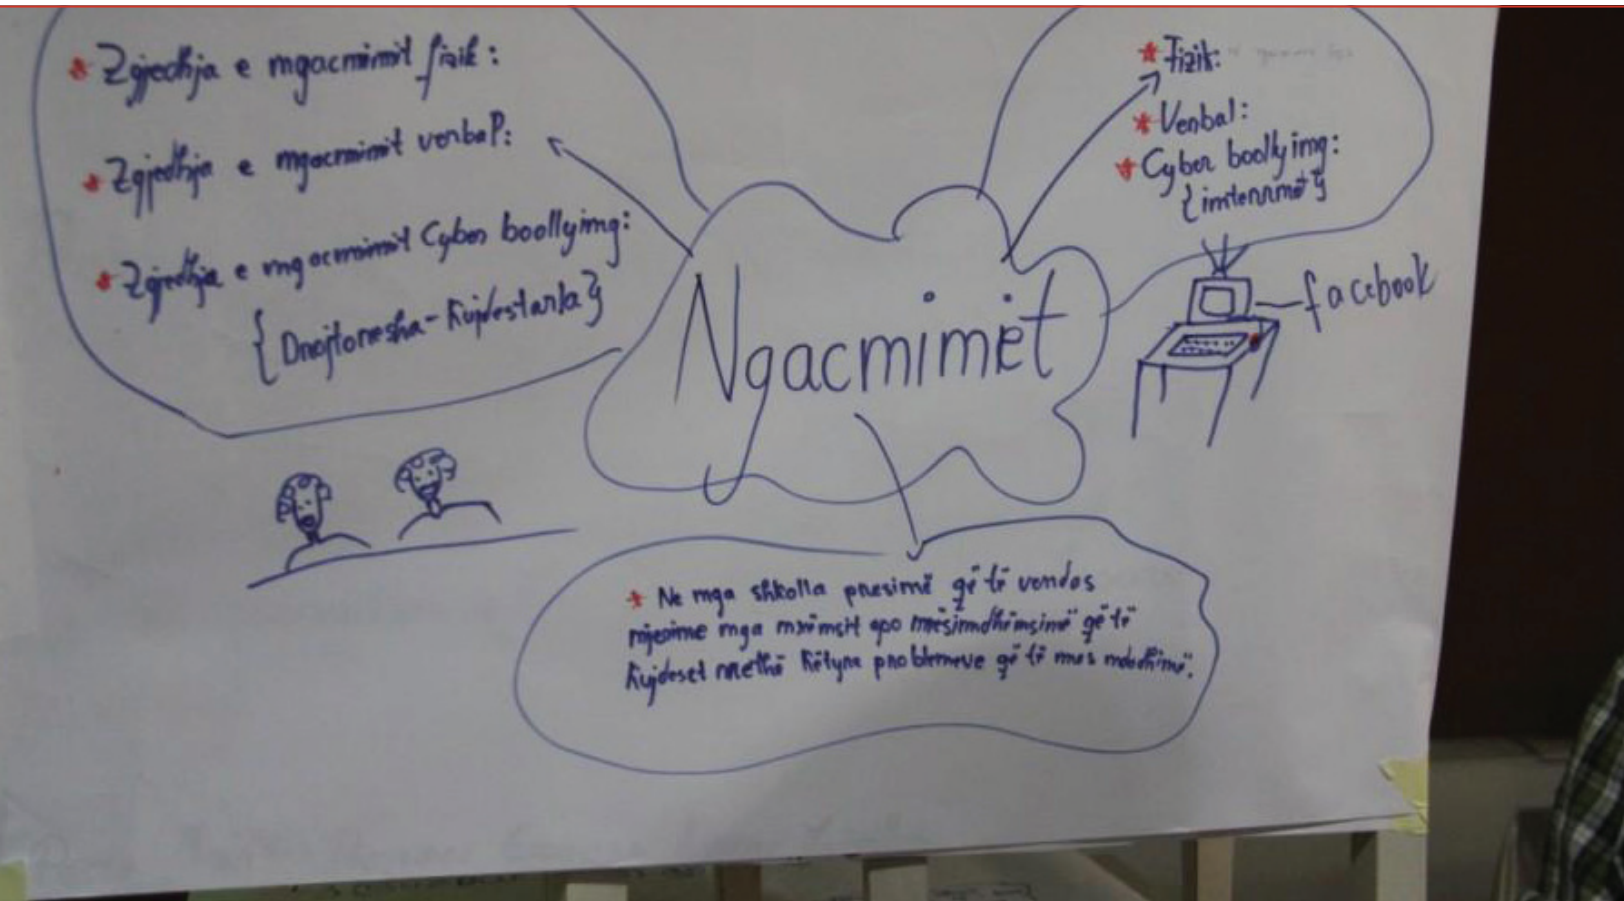 * Zgjedhja e mgacmimit fizik:
* Zgjedhja e mgacmimit verbal:
* Zgjedhja e mgacmimit Cyber boollying:
{Drejtoresha - Kujdestarka}
* Fizik:
* Verbal:
* Cyber boollying:
{internmë}
Ngacmimet
facebook
* Ne nga shkolla presimë që të vendos
nga apo mësimdhëmsimë që të
kujdeset rrethë këtyne problemeve që të mos mdodhimë.